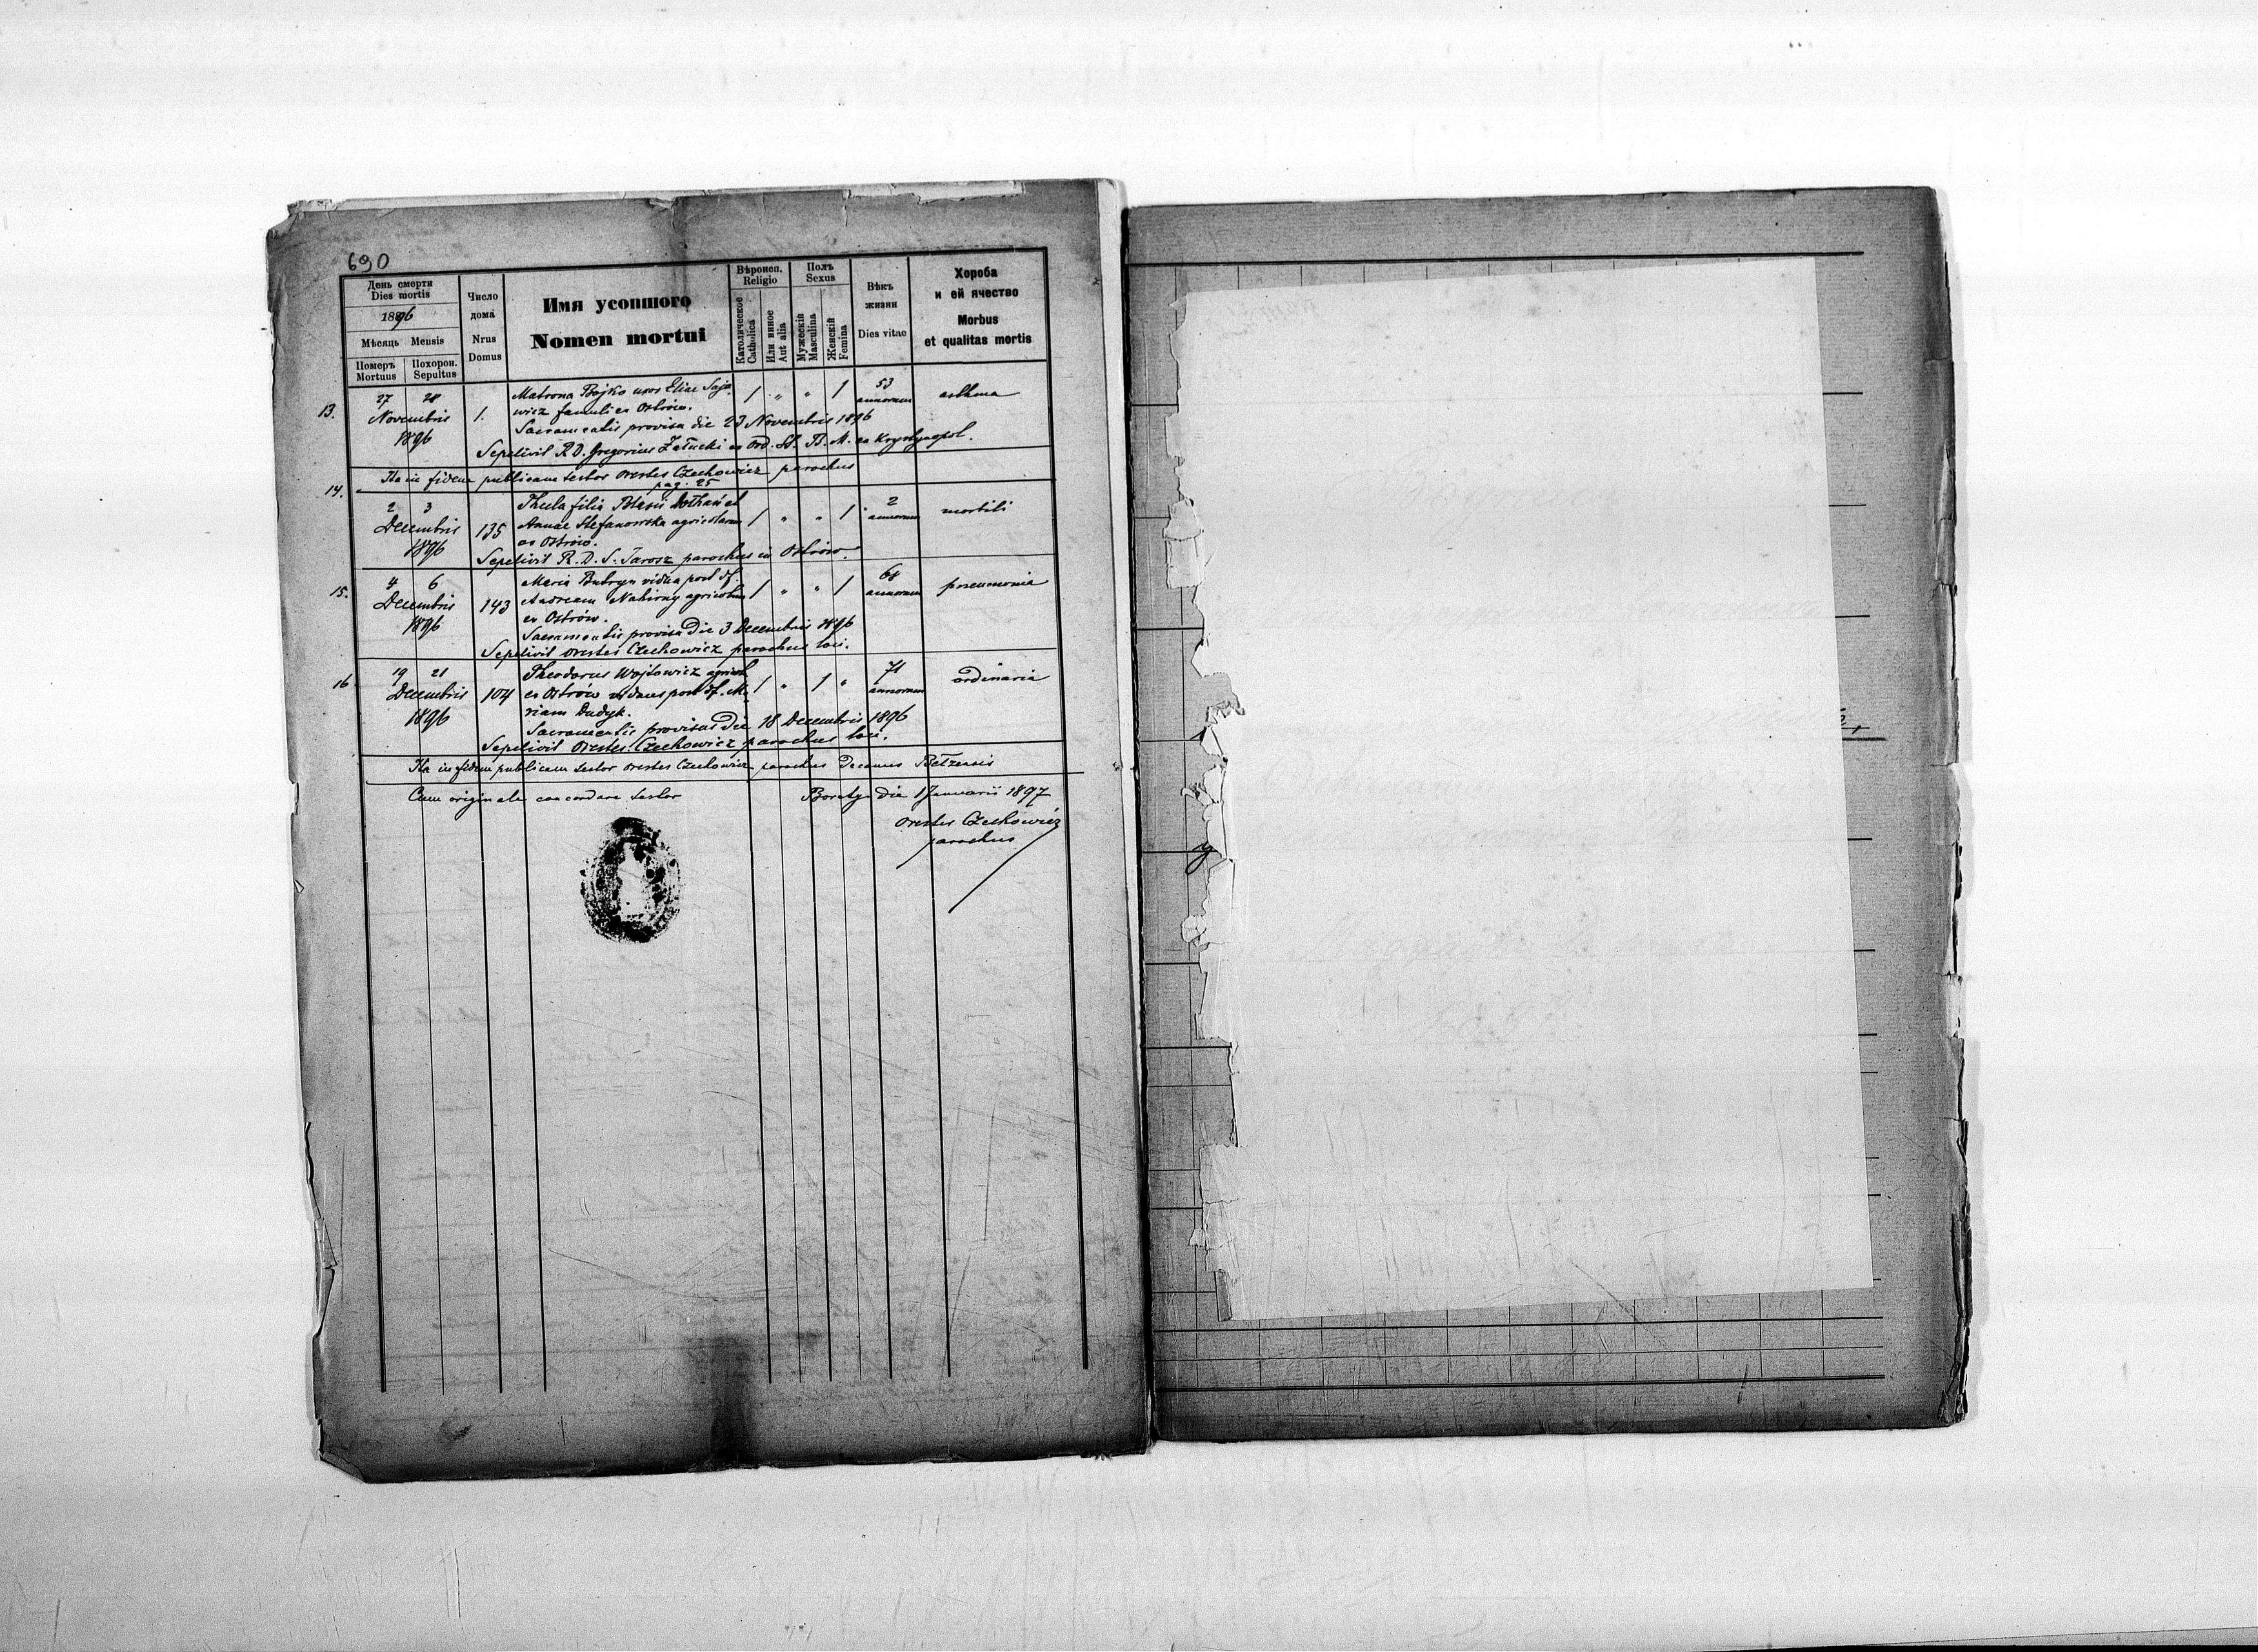 690
День смерти
Dies mortis
1896
Мѣсяць Mensis
Померъ Похорон.
Mortuus Sepultus
Число
дома
Nrus
Domus
Имя усопшого
Nomen mortui
Вѣроисп.
Religio
Католическое
Catholica
Или инное
Aut alia
Полъ
Sexus
Мужескій
Masculina
Женскій
Femina
Вѣкъ
жизни
Dies vitae
Хороба
и ей ячество
Morbus
et qualitas mortis
13. 27 28 Novembris 1896 1.
Matrona Bojko uxor Eliae
famuli ex Ostrów.
Sacramentis provisa die 23 Novembris 1896
1 " " 1 53 annorum asthma
Sepelivit R.D. Gregorius Załucki ex Ord. St. B. M. ex Krystynopol.
Ita in fidem publicam testor Orestes Czechowicz parochus
pag. 25
14. 2 3 Decembris 1896 135
Thecla filia Blasii et
Annae Stefanowska agricolarum
ex Ostrów.
1 " " 1 2 annorum morbili
Sepelivit R. D. S. Jarosz parochus in Ostrów.
15. 4 6 Decembris 1896 143
Maria Butryn vidua post df.
Andream Nahirny agricolam
ex Ostrów.
Sacramentis provisa die 3 Decembris 1896
1 " " 1 68 annorum pneumonia
Sepelivit Orestes Czechowicz parochus loci.
16 19 21 Decembris 1896 104
Theodorus Wojtowicz agricola
ex Ostrów viduus post df. Ma
riam Dudyk.
Sacramentis provisus die 18 Decembris 1896
1 " 1 " 71 annorum ordinaria
Sepelivit Orestes Czechowicz parochus loci.
Ita in fidem publicam testor Orestes Czechowicz parochus Decanus Bełzensis
Cum originale concordare testor Boratyn die 1 Januarii 1897
Orestes Czechowicz
parochus